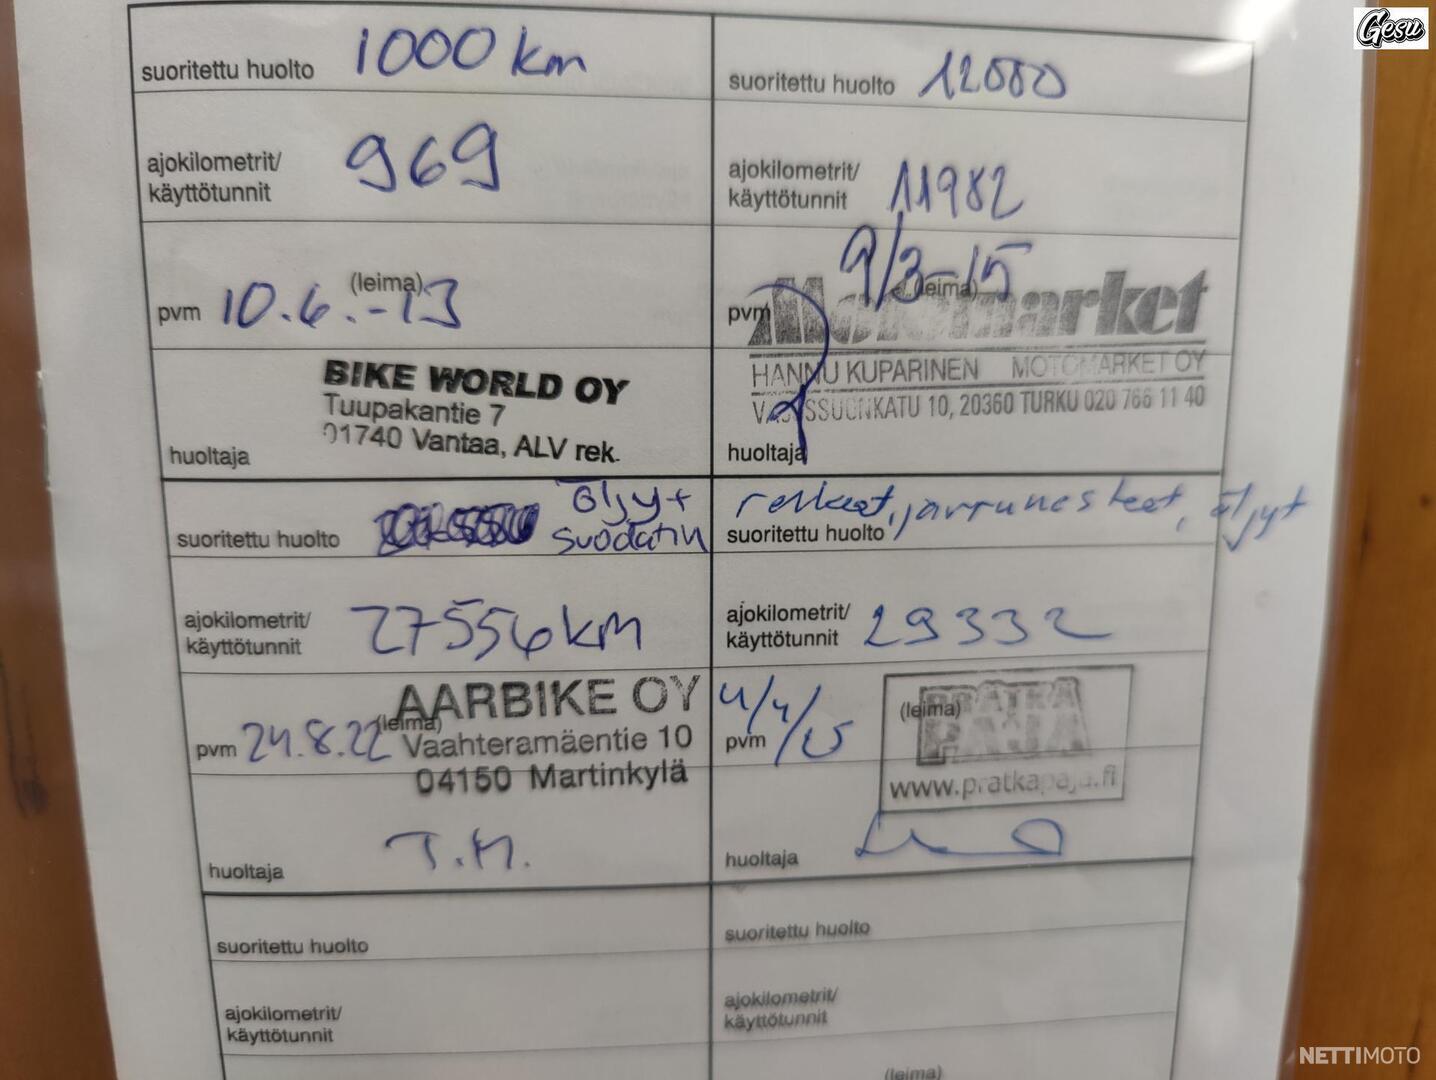 Gesu
suoritettu huolto 1000 km
ajokilometrit/
käyttötunnit 969
(leima)
pvm 10.6.-13
BIKE WORLD OY
Tuupakantie 7
01740 Vantaa, ALV rek.
huoltaja
suoritettu huolto 12000
ajokilometrit/
käyttötunnit 11982
9/3-15
pvm (leima)
Motomarket
HANNU KUPARINEN MOTOMARKET OY
20360 TURKU 020 766 11 40
huoltaja
öljyt
suoritettu huolto suodatin
ajokilometrit/
käyttötunnit 27556 km
AARBIKE OY
(leima)
pvm 24.8.22 Vaahteramäentie 10
04150 Martinkylä
huoltaja T.M.
renkaat, jarrunesteet, öljyt
suoritettu huolto
ajokilometrit/
käyttötunnit 29332
(leima) PRÄTKÄ
pvm PAJA
www.pratkapaja.fi
huoltaja
suoritettu huolto
ajokilometrit/
käyttötunnit
suoritettu huolto
ajokilometrit/
käyttötunnit
(leima)
NETTIMOTO